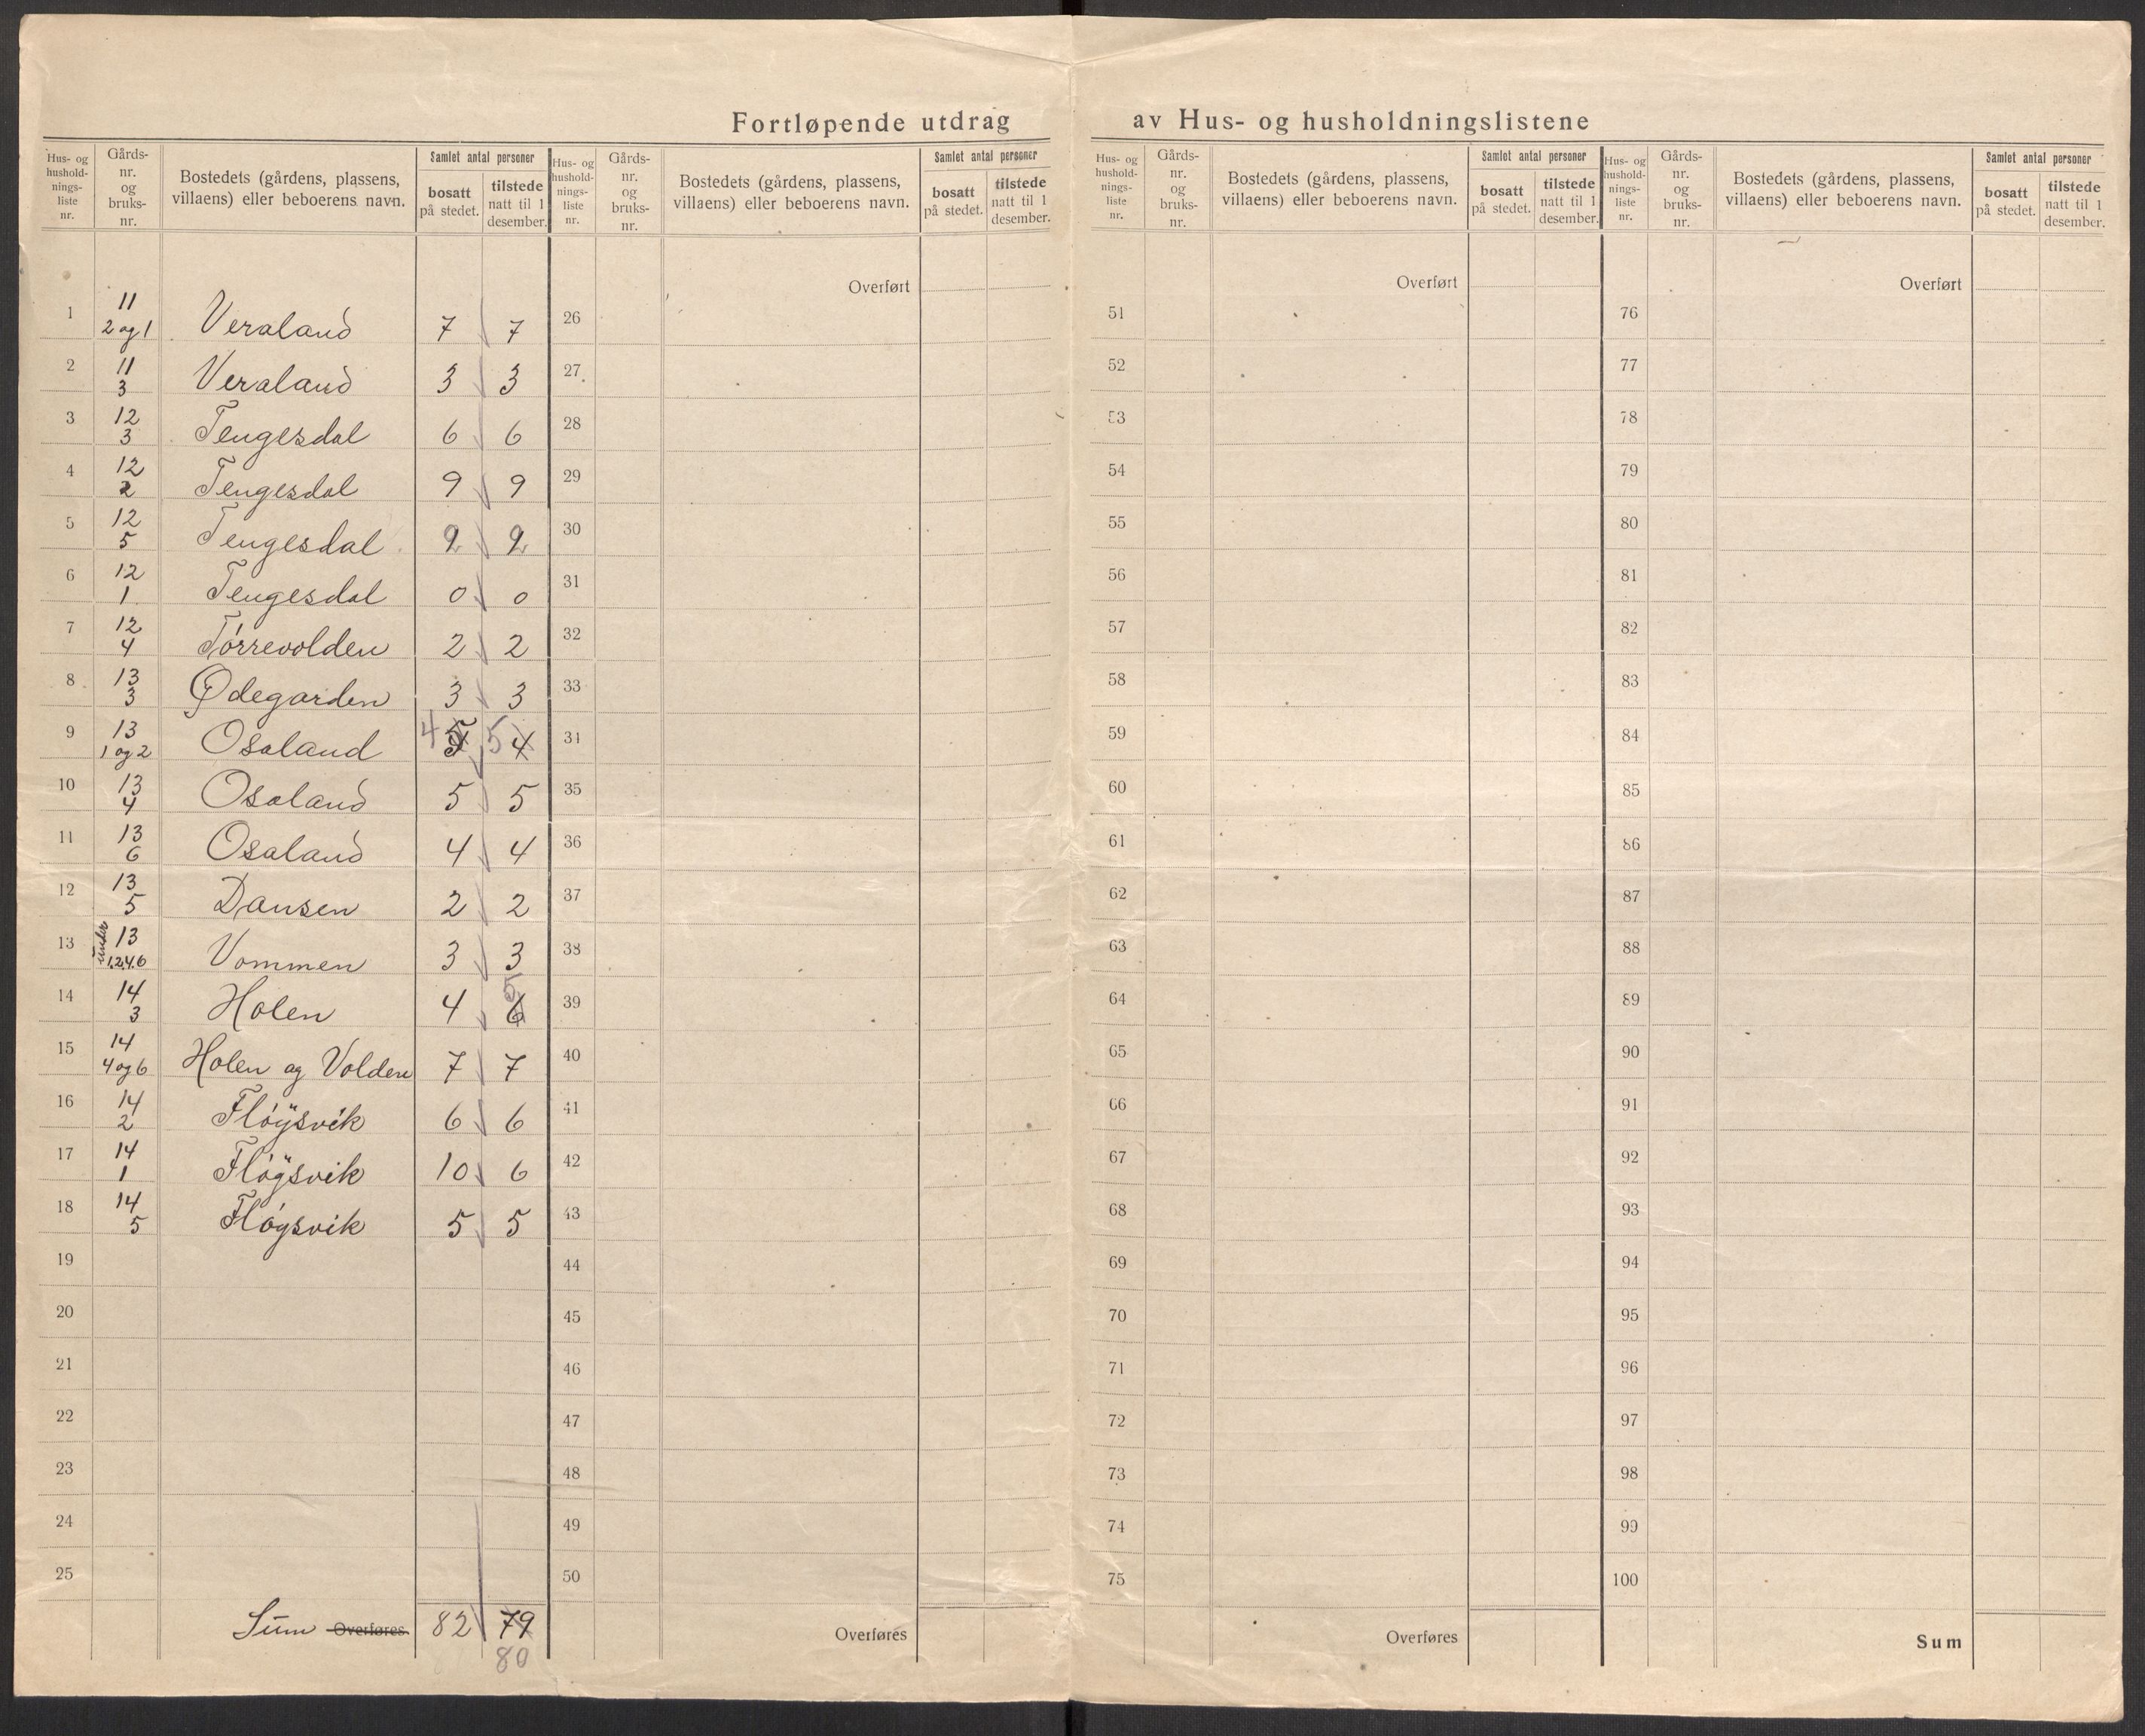 Fortløpende utdrag av Hus- og husholdningslistene
Hus- og hushold-nings-liste nr. Gårds-nr. og bruks-nr. Bostedets (gårdens, plassens, villaens) eller beboerens navn. Samlet antal personer bosatt på stedet. tilstede natt til 1 desember.
Hus- og hushold-nings-liste nr. Gårds-nr. og bruks-nr. Bostedets (gårdens, plassens, villaens) eller beboerens navn. Samlet antal personer bosatt på stedet. tilstede natt til 1 desember.
Hus- og hushold-nings-liste nr. Gårds-nr. og bruks-nr. Bostedets (gårdens, plassens, villaens) eller beboerens navn. Samlet antal personer bosatt på stedet. tilstede natt til 1 desember.
Hus- og hushold-nings-liste nr. Gårds-nr. og bruks-nr. Bostedets (gårdens, plassens, villaens) eller beboerens navn. Samlet antal personer bosatt på stedet. tilstede natt til 1 desember.
1 11 2 og 1 Veraland 7 7
2 11 3 Veraland 3 3
3 12 3 Tengesdal 6 6
4 12 2 Tengesdal 9 9
5 12 5 Tengesdal
6 12 1 Tengesdal 0 0
7 12 4 Tórrevolden 2 2
8 13 3 Ødegarden 3 3
9 13 1 og 2 Osaland 4 5 5 4
10 13 4 Osaland 5 5
11 13 6 Osaland 4 4
12 13 5 Dansen 2 2
13 under 13 1,2,4,6 Vommen 3 3
14 14 3 Holen 4 6 5
15 14 4 og 6 Holen og Volden 7 7
16 14 2 Flóÿsvik 6 6
17 14 1 Flóÿsvik 10 6
18 14 5 Flóysvik 5 5
19
20
21
22
23
24
25
Sum Overføres 82 79
80
Overført
26
27
28
29
30
31
32
33
34
35
36
37
38
39
40
41
42
43
44
45
46
47
48
49
50
Overføres
Overført
51
52
53
54
55
56
57
58
59
60
61
62
63
64
65
66
67
68
69
70
71
72
73
74
75
Overføres
Overført
76
77
78
79
80
81
82
83
84
85
86
87
88
89
90
91
92
93
94
95
96
97
98
99
100
Sum